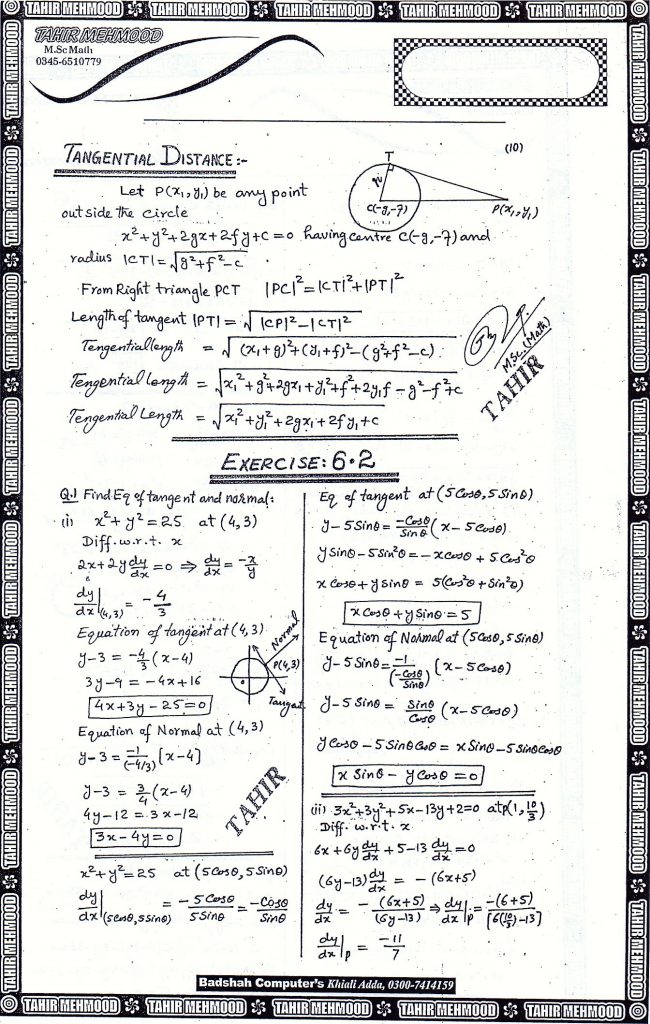 TAHIR MEHMOOD TAHIR MEHMOOD TAHIR MEHMOOD TAHIR MEHMOOD TAHIR MEHMOOD
TAHIR MEHMOOD
M.Sc Math
0345-6510779
(10)
TANGENTIAL DISTANCE:-
Let P(x₁,y₁) be any point
outside the circle
T
C(-g,-7)
P(x₁,y₁)
x²+y²+2gx+2fy+c=0 having centre C(-g,-7) and
radius |CT|=√(g²+f²-c)
From Right triangle PCT |PC|²=|CT|²+|PT|²
Length of tangent |PT|=√(|CP|²-|CT|²)
Tangential length = √((x₁+g)²+(y₁+f)²-(g²+f²-c))
Tangential Length = √(x₁²+g²+2gx₁+y₁²+f²+2y₁f-g²-f²+c)
Tangential Length = √(x₁²+y₁²+2gx₁+2fy₁+c)
M.Sc (Math)
TAHIR
EXERCISE: 6.2
Q.1 Find Eq of tangent and normal:
(i) x²+y²=25 at (4,3)
Diff. w.r.t. x
2x+2y dy/dx=0 ⇒ dy/dx = -x/y
dy/dx|(4,3) = -4/3
Equation of tangent at (4,3)
y-3 = -4/3 (x-4)
3y-9 = -4x+16
4x+3y-25=0
Normal
P(4,3)
o
Tangent
Equation of Normal at (4,3)
y-3 = -1/(-4/3) [x-4]
y-3 = 3/4 (x-4)
4y-12 = 3x-12
3x-4y=0
TAHIR
x²+y²=25 at (5cosθ,5sinθ)
dy/dx|(5cosθ,5sinθ) = -5cosθ/5sinθ = -cosθ/sinθ
Eq of tangent at (5cosθ,5sinθ)
y-5sinθ = -cosθ/sinθ (x-5cosθ)
ysinθ-5sin²θ = -xcosθ+5cos²θ
xcosθ+ysinθ = 5(cos²θ+sin²θ)
xcosθ+ysinθ=5
Equation of Normal at (5cosθ,5sinθ)
y-5sinθ = -1/(-cosθ/sinθ) [x-5cosθ]
y-5sinθ = sinθ/cosθ (x-5cosθ)
ycosθ-5sinθcosθ = xsinθ-5sinθcosθ
xsinθ-ycosθ=0
(ii) 3x²+3y²+5x-13y+2=0 at P(1,10/3)
Diff. w.r.t. x
6x+6y dy/dx+5-13 dy/dx=0
(6y-13) dy/dx = -(6x+5)
dy/dx = -(6x+5)/(6y-13) ⇒ dy/dx|p = -(6+5)/[6(10/3)-13]
dy/dx|p = -11/7
Badshah Computer's Khiali Adda, 0300-7414159
TAHIR MEHMOOD TAHIR MEHMOOD TAHIR MEHMOOD TAHIR MEHMOOD TAHIR MEHMOOD